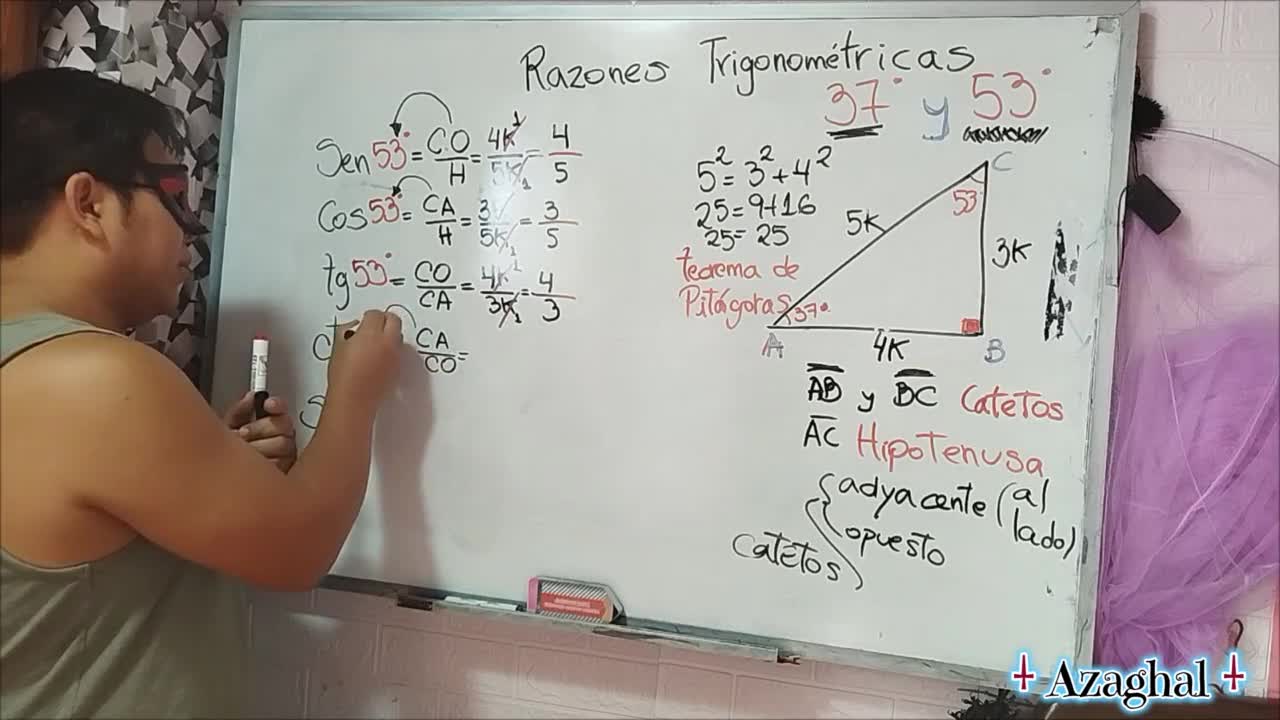 Razones Trigonométricas
37° y 53°
Sen 53° = CO/H = 4K/5K = 4/5
Cos 53° = CA/H = 3K/5K = 3/5
tg 53° = CO/CA = 4K/3K = 4/3
CA/CO =
5² = 3² + 4²
25 = 9 + 16
25 = 25
teorema de
Pitágoras
C
53°
5K
3K
37°
A
4K
B
AB y BC Catetos
AC Hipotenusa
Catetos
adyacente (al
lado)
opuesto
Azaghal